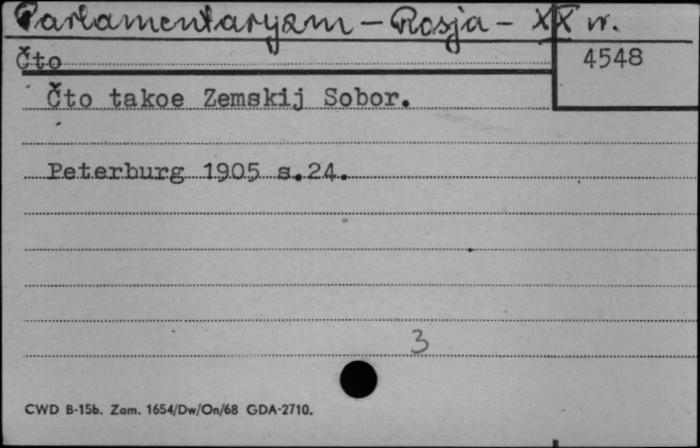 Parlamentaryzm - Rosja - XX w.
Čto
4548
Čto takoe Zemskij Sobor.
Peterburg 1905 s.24.
3
CWD B-15b. Zam. 1654/Dw/On/68 GDA-2710.